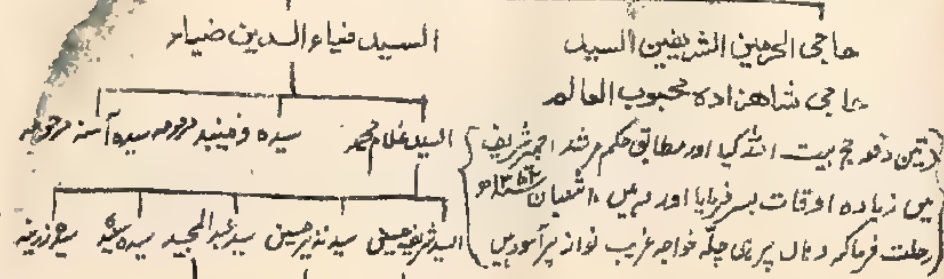 حاجی الحرمین الشریفین السید
حاجی شاهزاده محبوب العالم
(تین دفعہ حج بیت اللہ کیا اور مطابق حکم مرشد اجمیر شریف
میں زیادہ اوقات بسر فرمایا اور وہیں ۱۰ شعبان
رحلت فرما کر وہاں پر ہی چلّہ خواجہ غریب نواز پر آسودہ ہیں)
السید ضیاء الدین ضیاء
السید غلام محمد سیدہ مرحومہ سیدہ آمنہ مرحومہ
السید شریف حسین سید نذیر حسین سید عبدالمجید سیدہ